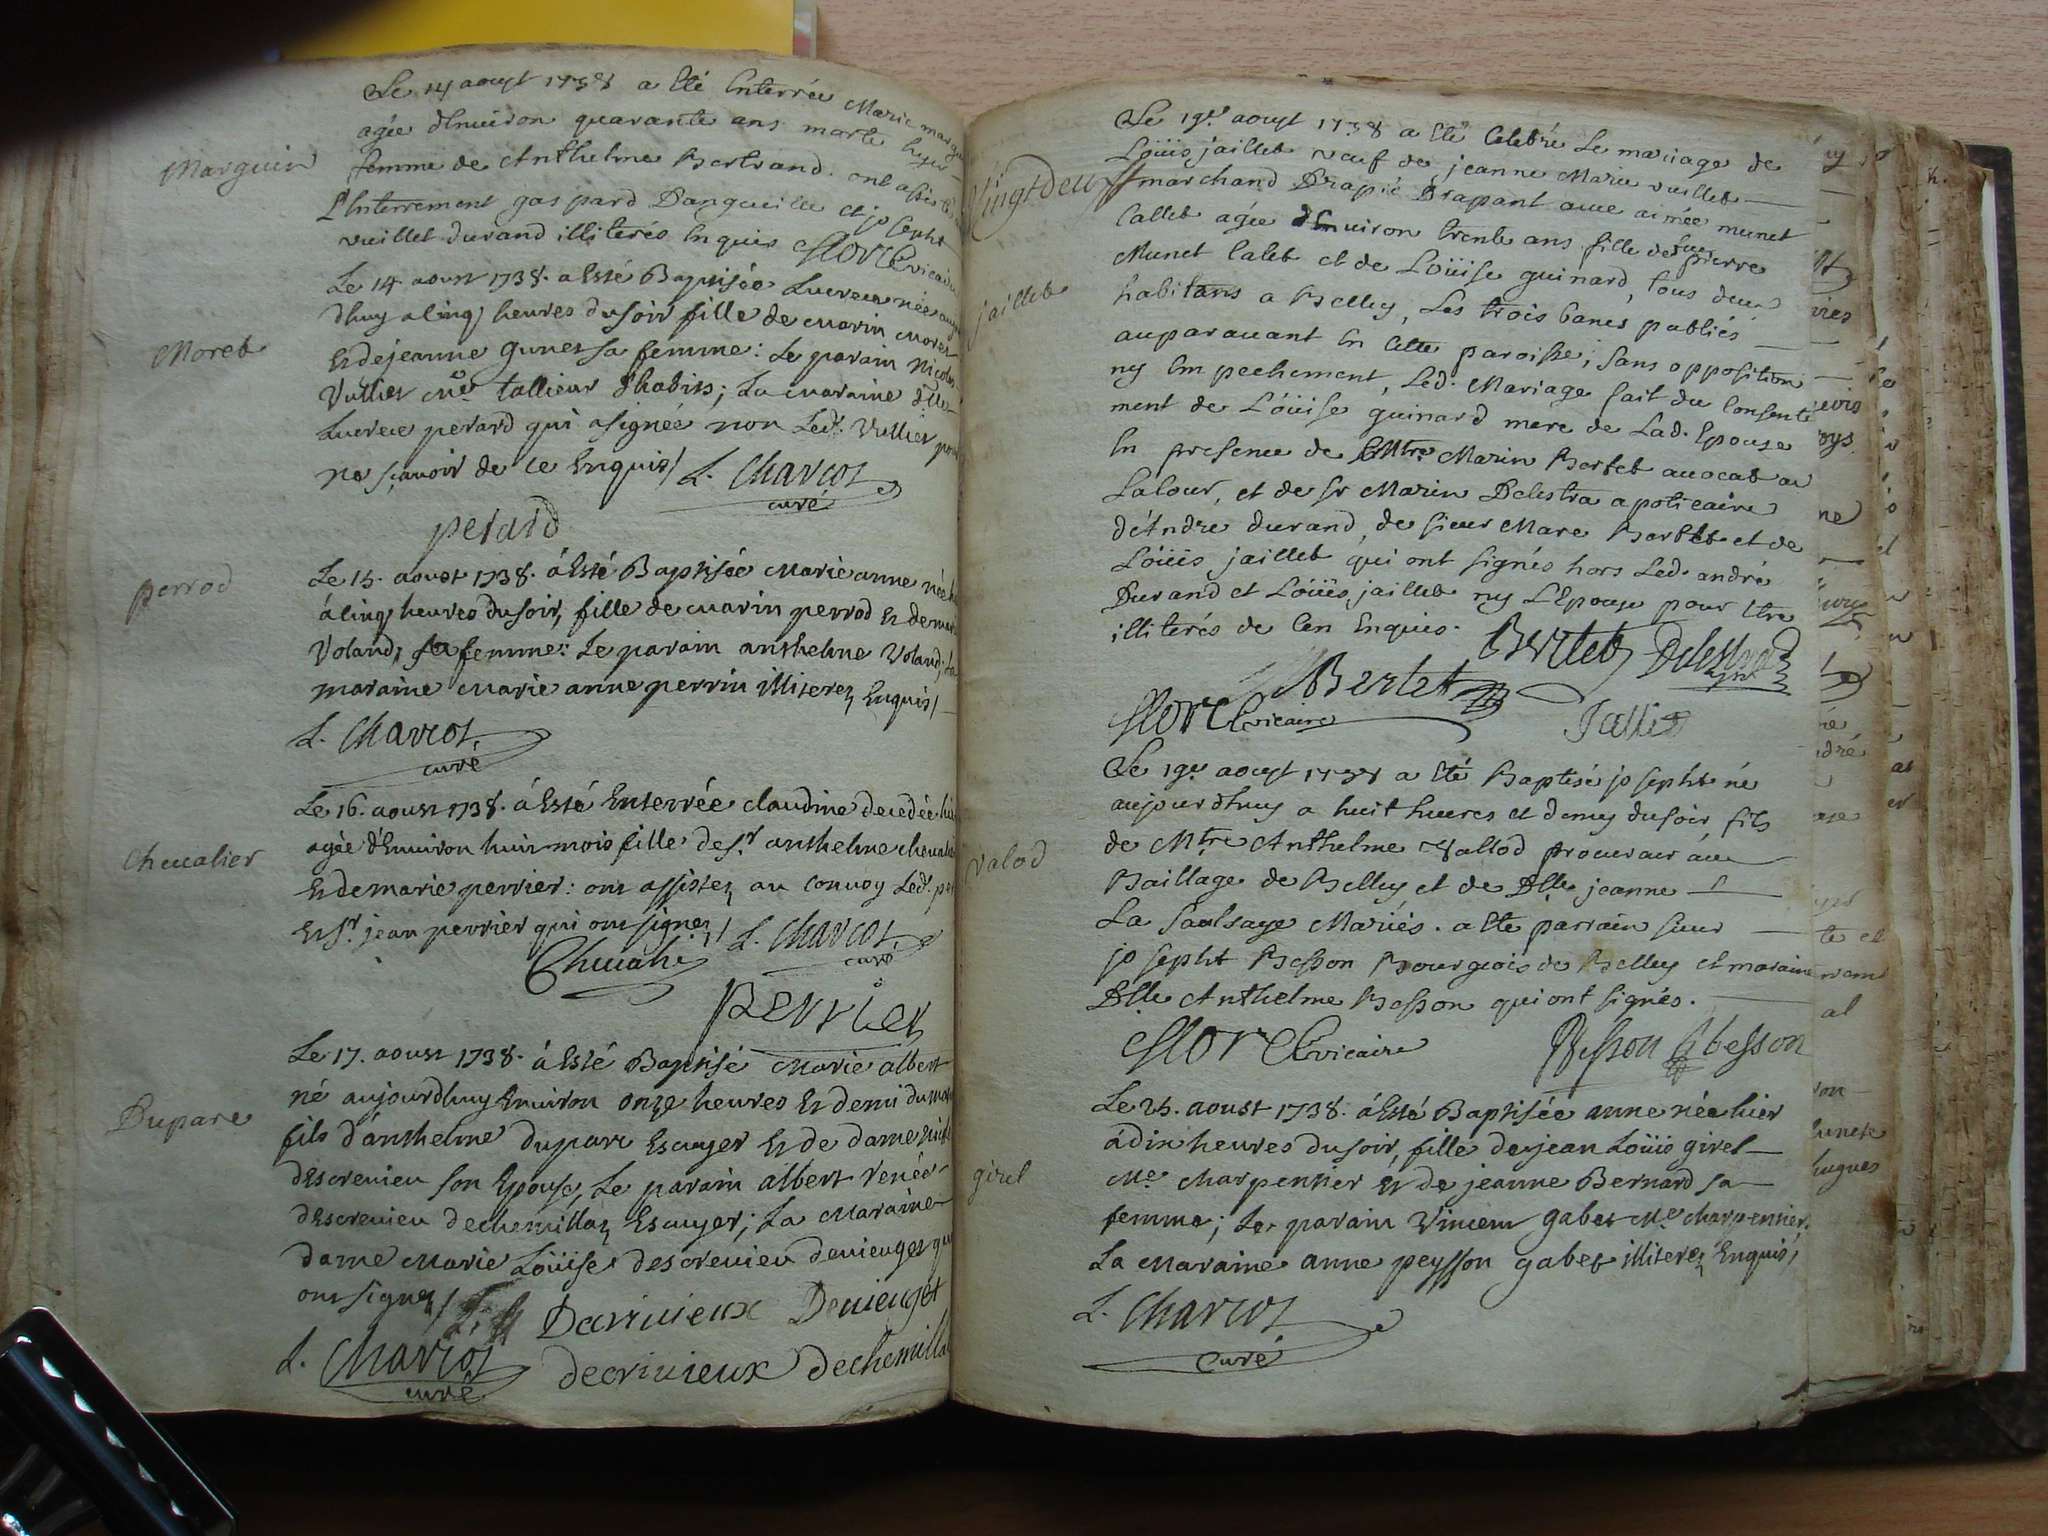 Le 14 aoust 1738 a Eté Enterrée Marie
agée d'Enuiron quarante ans morte hyer
femme de Anthelme Bertrand. ont assisté
L'Enterrement gaspard Dangueille et joseph
vuillet durand illiterés Enquis vicaire
Marguin
Le 14. aoust 1738. a Esté Baptisée Lucrece née
dhuy a cinq heures du soir fille de marin moret
Et de jeanne gunet sa femme: Le parain Nicolas
Vullier me tallieur d'habits; La maraine dlle
Lucrece perard qui a signée non Led. Vullier pour
ne sçavoir de ce Enquis / L. Charcot
curé
perard
Moret
Le 15. aoust 1738. à Esté Baptisée Marie anne née
à cinq heures du soir, fille de marin perrod Et de
Voland, sa femme: Le parain anthelme Voland; La
maraine marie anne perrin illiterez Enquis /
L. Charcot
curé
perrod
Le 16. aoust 1738. à Esté Enterrée claudine decedée
agée d'Enuiron huit mois fille de sr anthelme cheualier
Et de marie perrier: ont assistez au convoy Led.
Et sr jean perrier qui ont signez / L. Charcot
curé
Cheualier
perrier
Cheualier
Le 17. aoust 1738. à Esté Baptisé Marie albert
né aujourdhuy Enuiron onze heures Et demi du
fils d'anthelme duparc Escuyer Et de dame
descreuieu son Epouse, Le parain albert renée
descreuieu dechemillaz Escuyer; La Maraine
dame Marie Loüise descreuieu deuieuget qui
ont signez /
Decriuieux Deuieuget
L. Charcot decriuieux dechemilla
curé
Duparc
Le 19e aoust 1738 a Eté Celebré Le mariage de
Loüis jaillet veuf de jeanne Marie vuillet
marchand Drapié Drapant auec aimée munet
Callet agée d'Enuiron trente ans fille de feu pierre
Munet Calet et de Loüise guinard, tous deux
habitans a Belley, Les trois bancs publiés
auparauant En Cette paroisse; sans opposition
ny Empechement, Led. Mariage fait du Consente
ment de Loüise guinard mere de Lad. Epouse
En presence de Mtre Marin Bertet auocat au
Lacour, et de sr Marin Delestra apoticaire
d'Andre durand, de sieur Marc Bertet et de
Loüis jaillet qui ont signés hors Led. andré
Durand et Loüis jaillet ny L'Epouse pour Etre
illiterés de Cen Enquis.
Bertet Delestra
Bertet
vicaire Jallet
Vingtdeux
jaillet
Le 19e aoust 1738 a Eté Baptisé joseph né
aujourdhuy a huit heures et demy du soir, fils
de Mtre Anthelme Vallod procureur au
Baillage de Belley et de Dlle jeanne
La Saulsaye Mariés. a Ete parrain sieur
joseph Besson Bourgeois de Belley et maraine
Dlle Anthelme Besson qui ont signés.
vicaire Besson besson
valod
Le 25. aoust 1738. à Esté Baptisée anne née hier
à dix heures du soir, fille de jean Loüis girel
Me charpentier Et de jeanne Bernard sa
femme; Le parain Vincent gabet Me charpentier,
La Maraine anne peysson gabet illiterez Enquis /
L. Charcot
Curé
girel